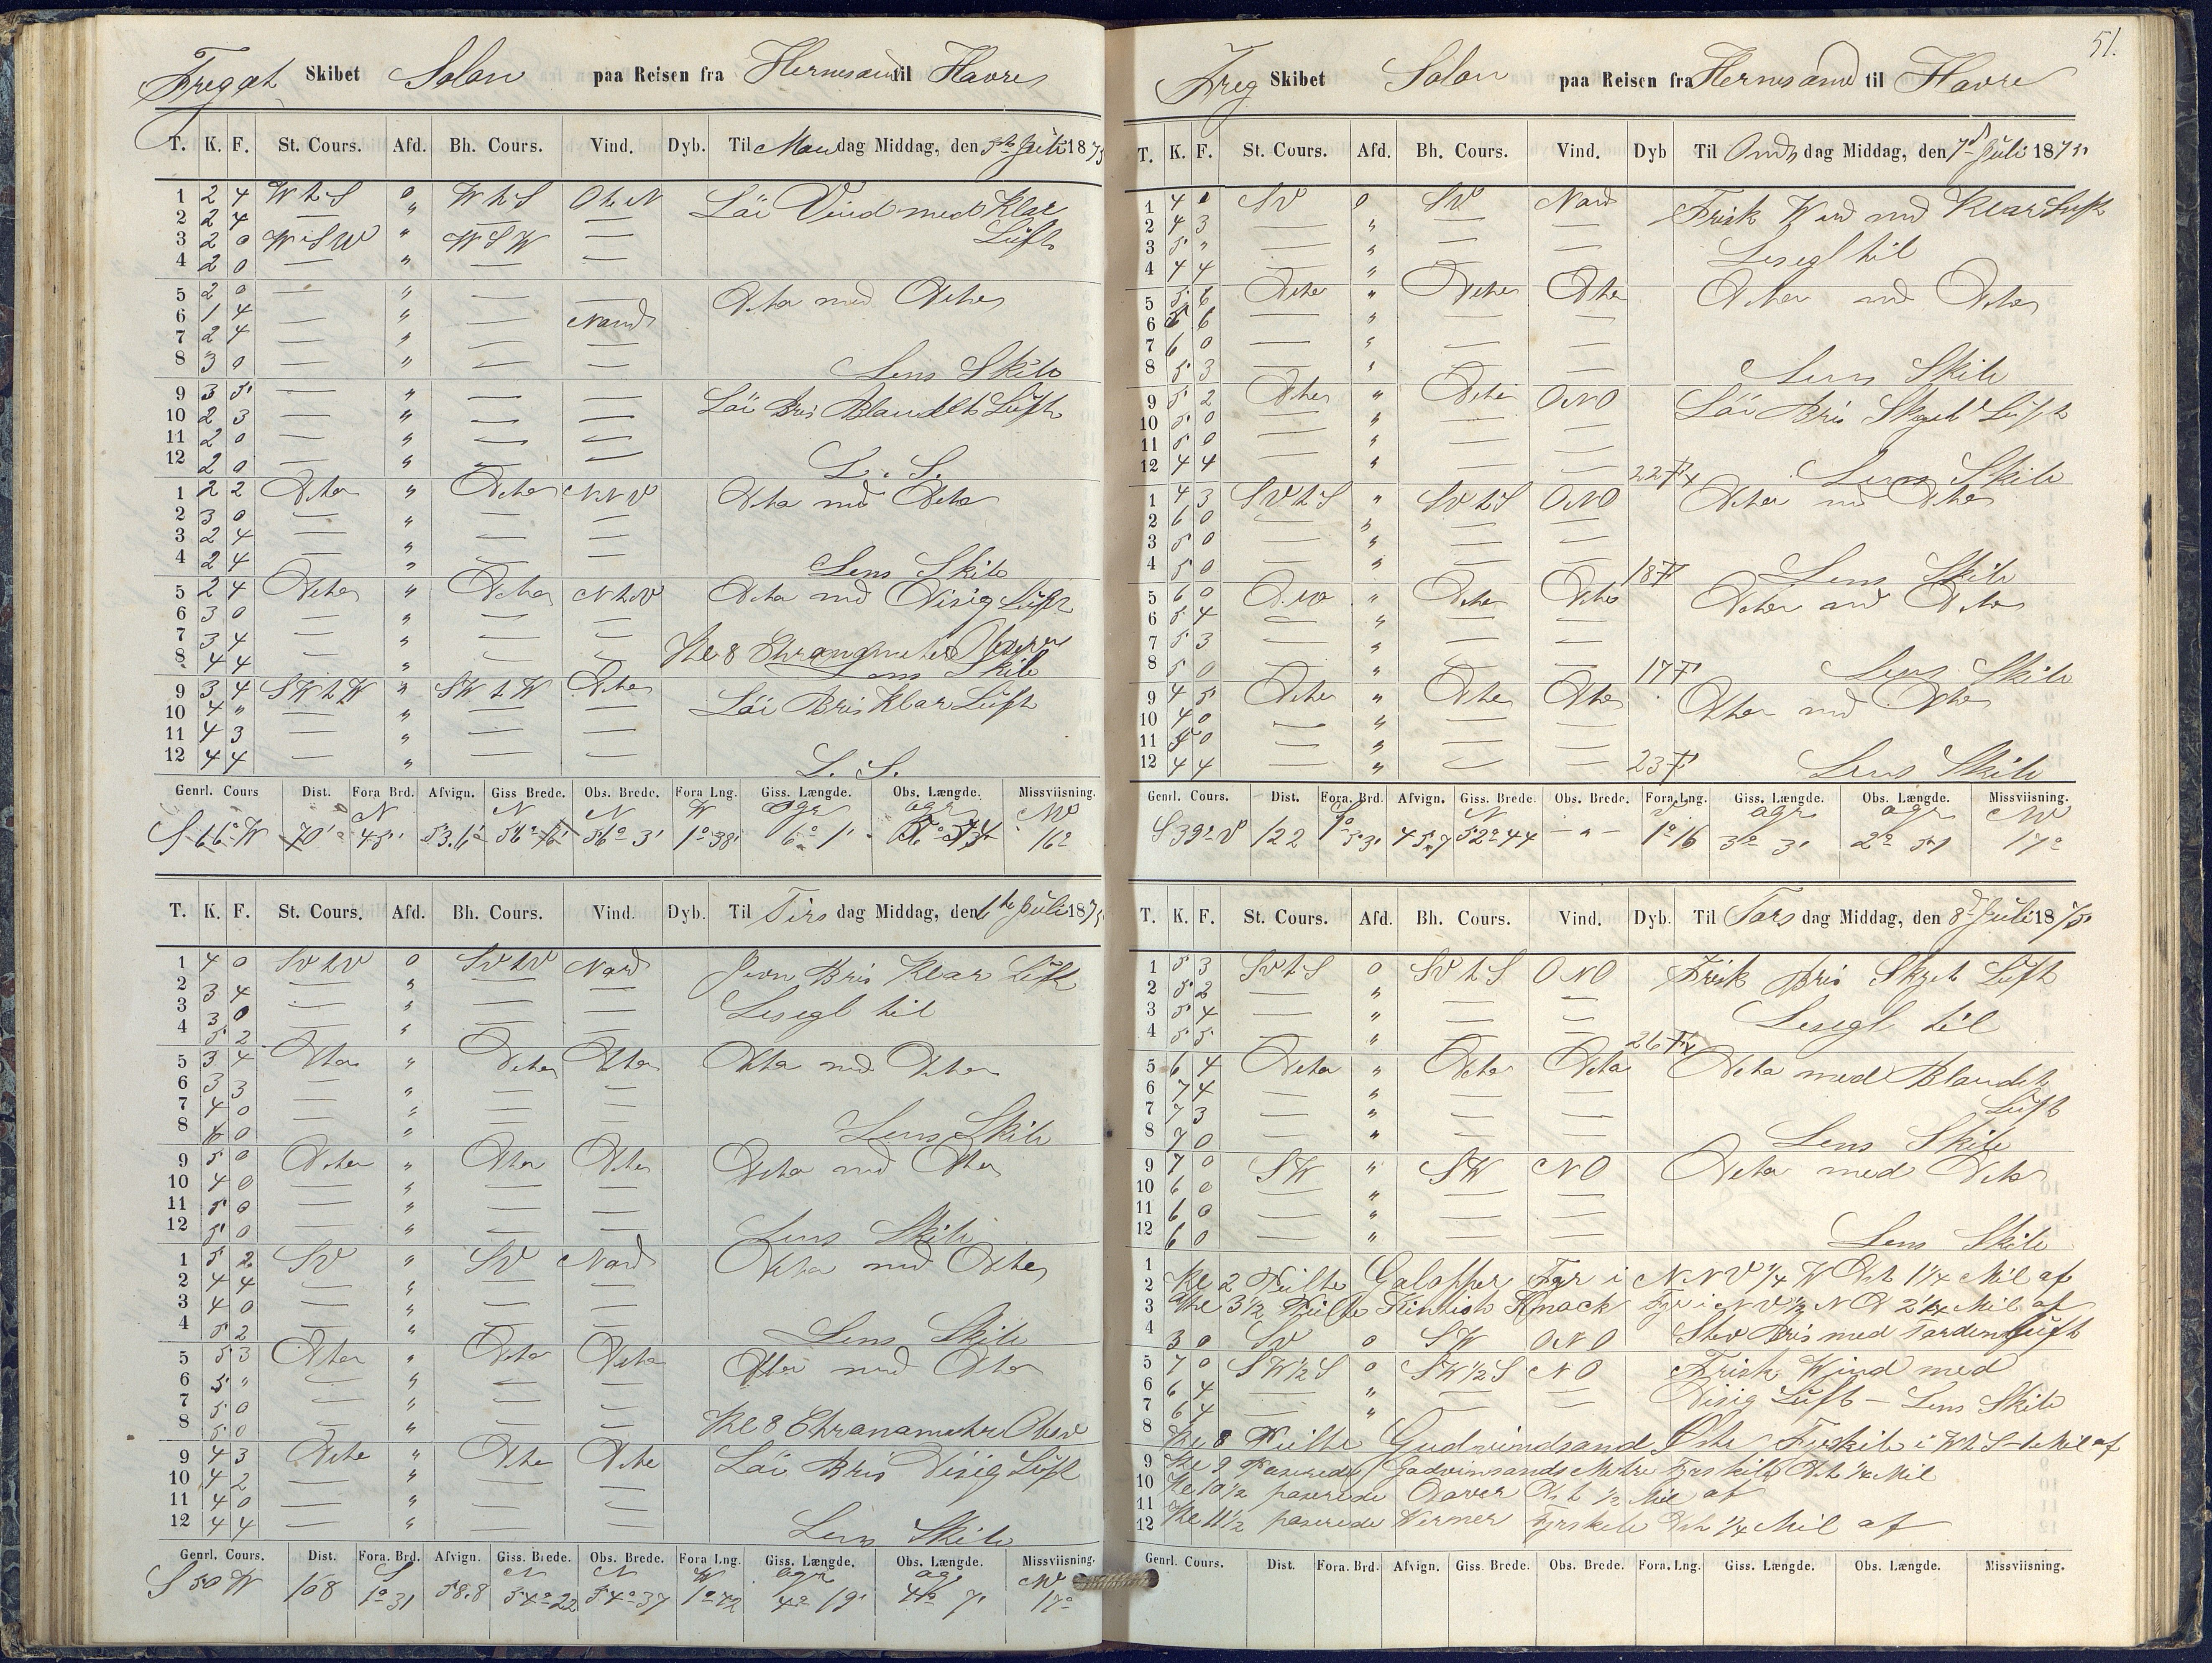 Fregat Skibet Solon paa Reisen fra Hernesand til Havre
T. K. F. St. Cours. Afd. Bh. Cours. Vind. Dyb. Til Mandag Middag, den 5te Juli 1875
1 2 4 W t S 0 W t S O t N Löi Vind med Klar
2 2 4 — " — — Luft
3 2 0 WSW " WSW —
4 2 0 — " — —
5 2 0 — " — — Dito med Dito
6 1 4 — " — Nord
7 2 4 — " — —
8 3 0 — " — — Lens Skib
9 3 5 — " — — Löi Bris Blandet Luft
10 2 3 — " — —
11 2 0 — " — —
12 2 0 — " — — L. S.
1 2 2 Dito " Dito NNV Dito med Dito
2 3 0 — " — —
3 2 4 — " — —
4 2 4 — " — — Lens Skib
5 2 4 Dito " Dito N t V Dito med Disig Luft
6 3 0 — " — —
7 3 4 — " — — Kl 8 Chronometer Observ
8 4 4 — " — — Lens Skib
9 3 4 SW t W " SW t W Dito Löi Bris Klar Luft
10 4 " — " — —
11 4 3 — " — —
12 4 4 — " — — L. S.
Genrl. Cours Dist. Fora Brd. Afvign. Giss Brede. Obs. Brede. Fora Lng. Giss. Længde. Obs. Længde. Missviisning.
N N N W ogr ogr NW
S 66° W 70' 45' 53.6 56° 3' 1° 38' 6° 1' 16°
T. K. F. St. Cours. Afd. Bh. Cours. Vind. Dyb. Til Tirsdag Middag, den 6te Juli 1875
1 4 0 SV t V 0 SV t V Nord Jevn Bris Klar Luft
2 3 4 — " — —
3 3 0 — " — — Lesegl til
4 5 2 — " — —
5 3 4 Dito " Dito Dito Dito med Dito
6 3 3 — " — —
7 4 0 — " — —
8 4 0 — " — — Lens Skib
9 5 0 Dito " Dito Dito Dito med Dito
10 4 0 — " — —
11 5 0 — " — —
12 5 0 — " — — Lens Skib
1 5 2 SV " SV Nord Dito med Dito
2 4 4 — " — —
3 4 0 — " — —
4 5 2 — " — — Lens Skib
5 5 3 Dito " Dito Dito Dito med Dito
6 5 " — " — —
7 5 0 — " — —
8 5 0 — " — — Kl 8 Chronometer Obser
9 4 3 Dito " Dito Dito Löi Bris Disig Luft
10 4 2 — " — —
11 4 0 — " — —
12 4 4 — " — — Lens Skib
Genrl. Cours. Dist. Fora. Brd. Afvign. Giss. Brede. Obs. Brede. Fora Lng. Giss. Længde. Obs. Længde. Missviisning.
S N N W ogr ogr NW
S 50 W 108 1° 31 58.8 54° 22 54° 37 1° 42 4° 19' 4° 7' 17°
51.
Freg Skibet Solon paa Reisen fra Hernesand til Havre
T. K. F. St. Cours. Afd. Bh. Cours. Vind. Dyb Til Onsdag Middag, den 7de Juli 1875
1 4 0 SV 0 SV Nord Frisk Wind med Klar Luft
2 4 3 — " — —
3 5 " — " — — Lesegl til
4 4 4 — " — —
5 5 6 Dito " Dito Dito Dito med Dito
6 5 6 — " — —
7 6 0 — " — —
8 5 3 — " — — Lens Skib
9 5 2 Dito " Dito ONO Löi Bris Skyet Luft
10 5 0 — " — —
11 5 0 — " — —
12 4 4 — " — — 22 F Lens Skib
1 4 3 SV t S " SV t S ONO Dito med Dito
2 6 0 — " — —
3 5 0 — " — —
4 5 0 — " — — 18 F Lens Skib
5 6 0 Dito " Dito Dito Dito med Dito
6 5 4 — " — —
7 5 3 — " — —
8 5 0 — " — — 17 F Lens Skib
9 4 5 Dito " Dito Dito Dito med Dito
10 4 0 — " — —
11 5 0 — " — —
12 4 4 — " — — 23 F Lens Skib
Genrl. Cours. Dist. Fora. Brd. Afvign. Giss. Brede. Obs. Brede. Fora. Lng. Giss. Længde. Obs. Længde. Missviisning.
N V ogr ogr NW
S 39° V 122 1° 53' 45.7 52° 44 — " — 1° 16 3° 3' 2° 51 17°
T. K. F. St. Cours. Afd. Bh. Cours. Vind. Dyb. Til Torsdag Middag, den 8de Juli 1875
1 5 3 SV t S 0 SV t S ONO Frisk Bris Skyet Luft
2 5 2 — " — —
3 5 4 — " — — Lesegl til
4 5 5 — " — — 26 F
5 6 4 Dito " Dito Dito Dito med Blandet
6 7 4 — " — — Luft
7 7 3 — " — —
8 7 0 — " — — Lens Skib
9 7 0 SW " SW NO Dito med Dito
10 6 0 — " — —
11 6 0 — " — —
12 6 0 — " — — Lens Skib
1
2 Kl 2 Peilte Galopper Fyr i NNV 1/4 W Dst 1 1/4 Mil af
3 Kl 3 1/2 Peilte Kentish Knock Fyr i NV 1/2 N D 2 1/4 Mil af
4 3 0 SV 0 SW ONO Stiv Bris med Torden Luft
5 7 0 SW 1/2 S 0 SW 1/2 S NO Frisk Wind med
6 6 4 — " — — Disig Luft — Lens Skib
7 6 4 — " — —
8 Kl 8 Peilte Gudvindsand Öste Fyrskib i W t S — Mil af
9 Kl 9 Paserede Gadvinsands Fyrskib Dst Mil
10 Kl 10 1/2 paserede Dover Dst 1/2 Mil af
11
12 Kl 11 1/2 paserede Werner Fyrskib Dst 1/4 Mil af
Genrl. Cours. Dist. Fora. Brd. Afvign. Giss. Brede. Obs. Brede. Fora. Lng. Giss. Længde. Obs. Længde. Missviisning.